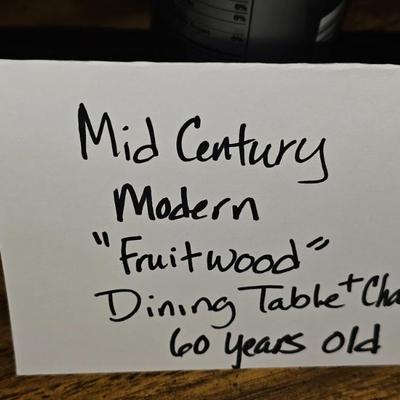 0%
0%
0%
Mid Century
Modern
"Fruitwood"
Dining Table + Cha
60 years Old